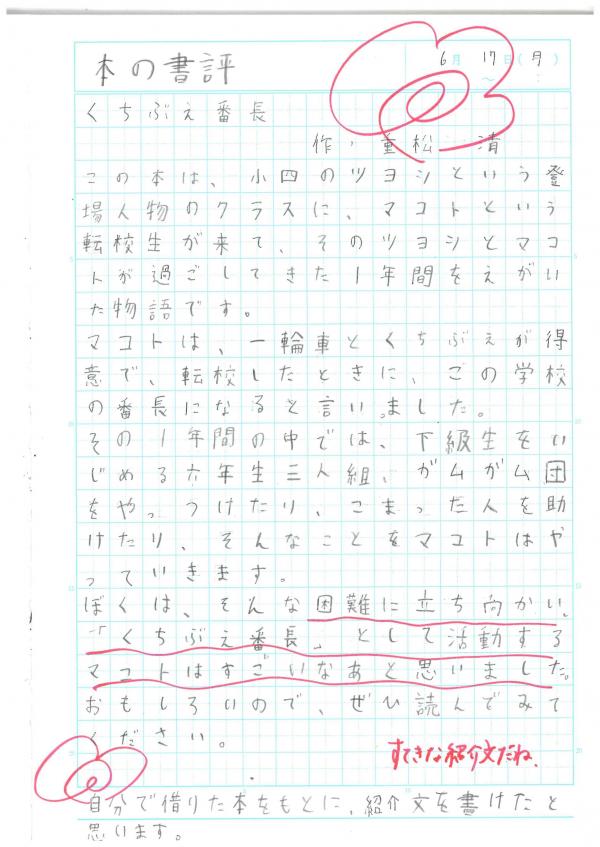 本の書評
6月 17日(月)
～ :
くちぶえ番長
作・重松 清
この本は、小四のツヨシという登
場人物のクラスに、マコトという
転校生が来て、そのツヨシとマコ
トが過ごしてきた1年間をえがい
た物語です。
マコトは、一輪車とくちぶえが得
意で、転校したときに、この学校
の番長になると言いました。
その1年間の中では、下級生をい
じめる六年生三人組、ガムガム団
をやっつけたり、こまった人を助
けたり、そんなことをマコトはや
っていきます。
ぼくは、そんな困難に立ち向かい、
「くちぶえ番長」として活動する
マコトはすごいなあと思いました。
おもしろいので、ぜひ読んでみて
ください。
すてきな紹介文だね。
自分で借りた本をもとに、紹介文を書けたと
思います。